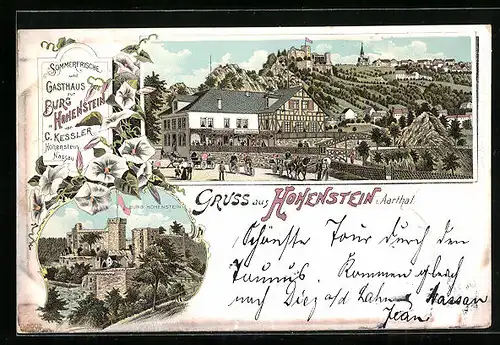 SOMMERFRISCHE
und
GASTHAUS
zur
BURG
HOHENSTEIN
von
C. KESSLER
Hohenstein
Nassau
GRUSS aus HOHENSTEIN i. Aarthal.
BURG HOHENSTEIN
Schönste Tour durch den
Taunus. Kommen gleich
nach Diez a/d Lahn Nassau
Jean.